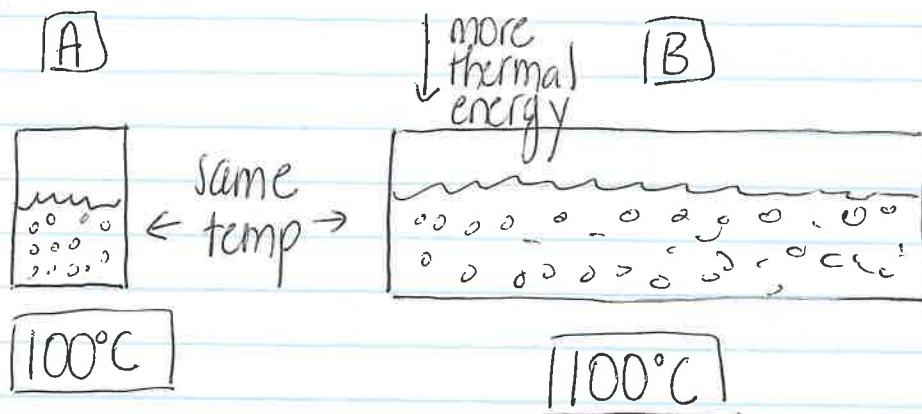 A
more
thermal
energy
B
same
← temp →
100°C
100°C